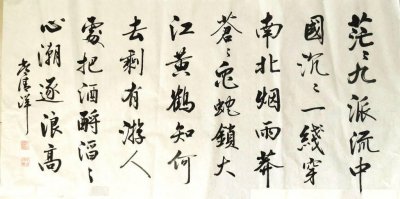 茫〻九派流中
國沉〻一綫穿
南北烟雨莽
蒼〻龟蛇鎖大
江黄鶴知何
去剩有游人
處把酒酹滔〻
心潮逐浪高